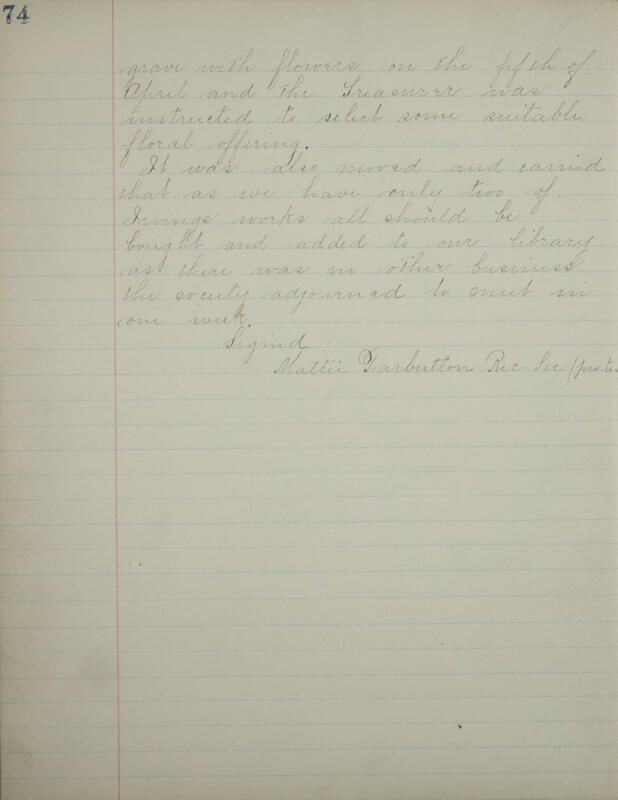 74
grave with flowers on the fifth of
April and the Treasurer was
instructed to select some suitable
floral offering.
It was also moved and carried
that as we have only two of
Irvings works all should be
bought and added to our library
as there was no other business
the society adjourned to meet in
one week.
Signed
Mattie Tarbutton Rec Sec (pro.tem